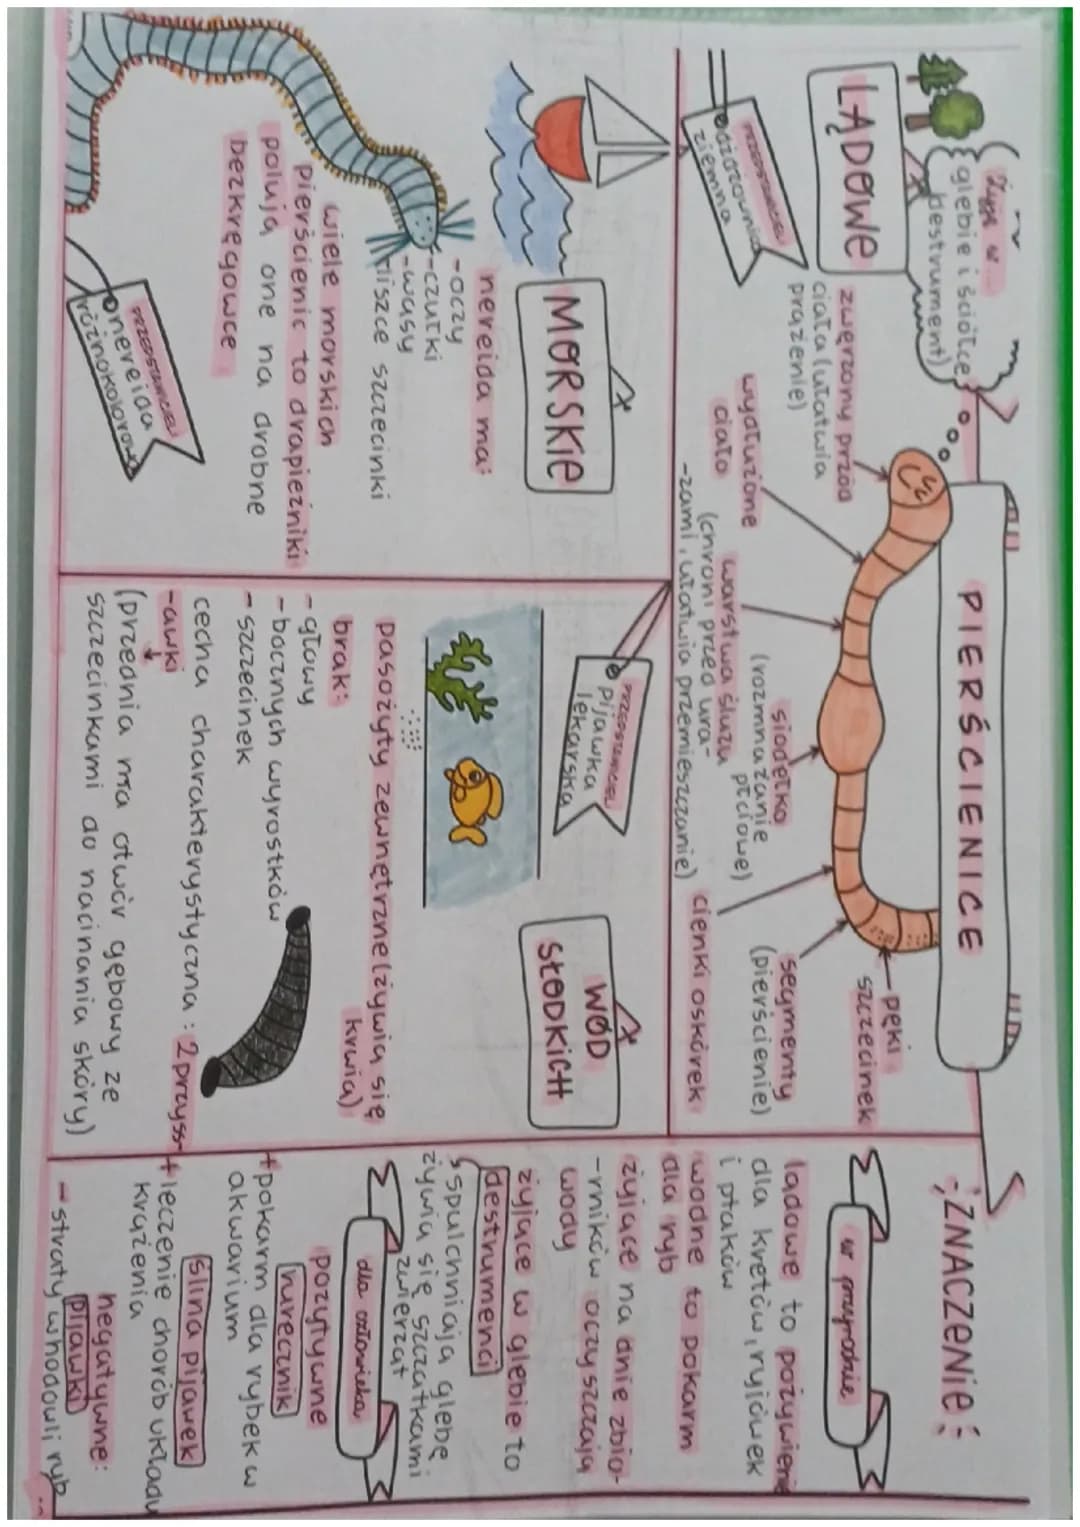 PIERŚCIENICE
Żyją w...
glebie i ściółce
(destrument)
LĄDOWE
PRZEDSTAWICIEL
dżdżownica
ziemna
zwężony przód
ciała (ułatwia
prążenie)
wydłużone
ciało
warstwa śluzu
(chroni przed ura-
-zami, ułatwia przemieszczanie)
siodełko
(rozmnażanie
płciowe)
cienki oskórek
segmenty
(pierścienie)
pęki
szczecinek
MORSKIE
nereida ma:
-oczy
-czułki
-wąsy
szczecinki
wiele morskich
pierścienic to drapieżniki
polują one na drobne
bezkręgowce
PRZEDSTAWICIEL
nereida
różnokolorowa
WÓD
SŁODKICH
PRZEDSTAWICIEL
pijawka
lekarska
pasożyty zewnętrzne (żywią się
krwią)
brak:
- głowy
- bocznych wyrostków
- szczecinek
cecha charakterystyczna: 2 przyss-
-awki
(przednia ma otwór gębowy ze
szczecinkami do nacinania skóry)
ZNACZENIE:
w przyrodzie
lądowe to pożywienie
dla kretów, ryjówek
i ptaków
wodne to pokarm
dla ryb
żyjące na dnie zbio-
-rników oczyszczają
wody
żyjące w glebie to
destrumenci
spulchniają glebę
żywią się szczątkami
zwierząt
dla człowieka
pozytywne
rurecznik
+ pokarm dla rybek w
akwarium
ślina pijawek
+ leczenie chorób układu
krążenia
negatywne:
pijawki
- straty w hodowli ryb